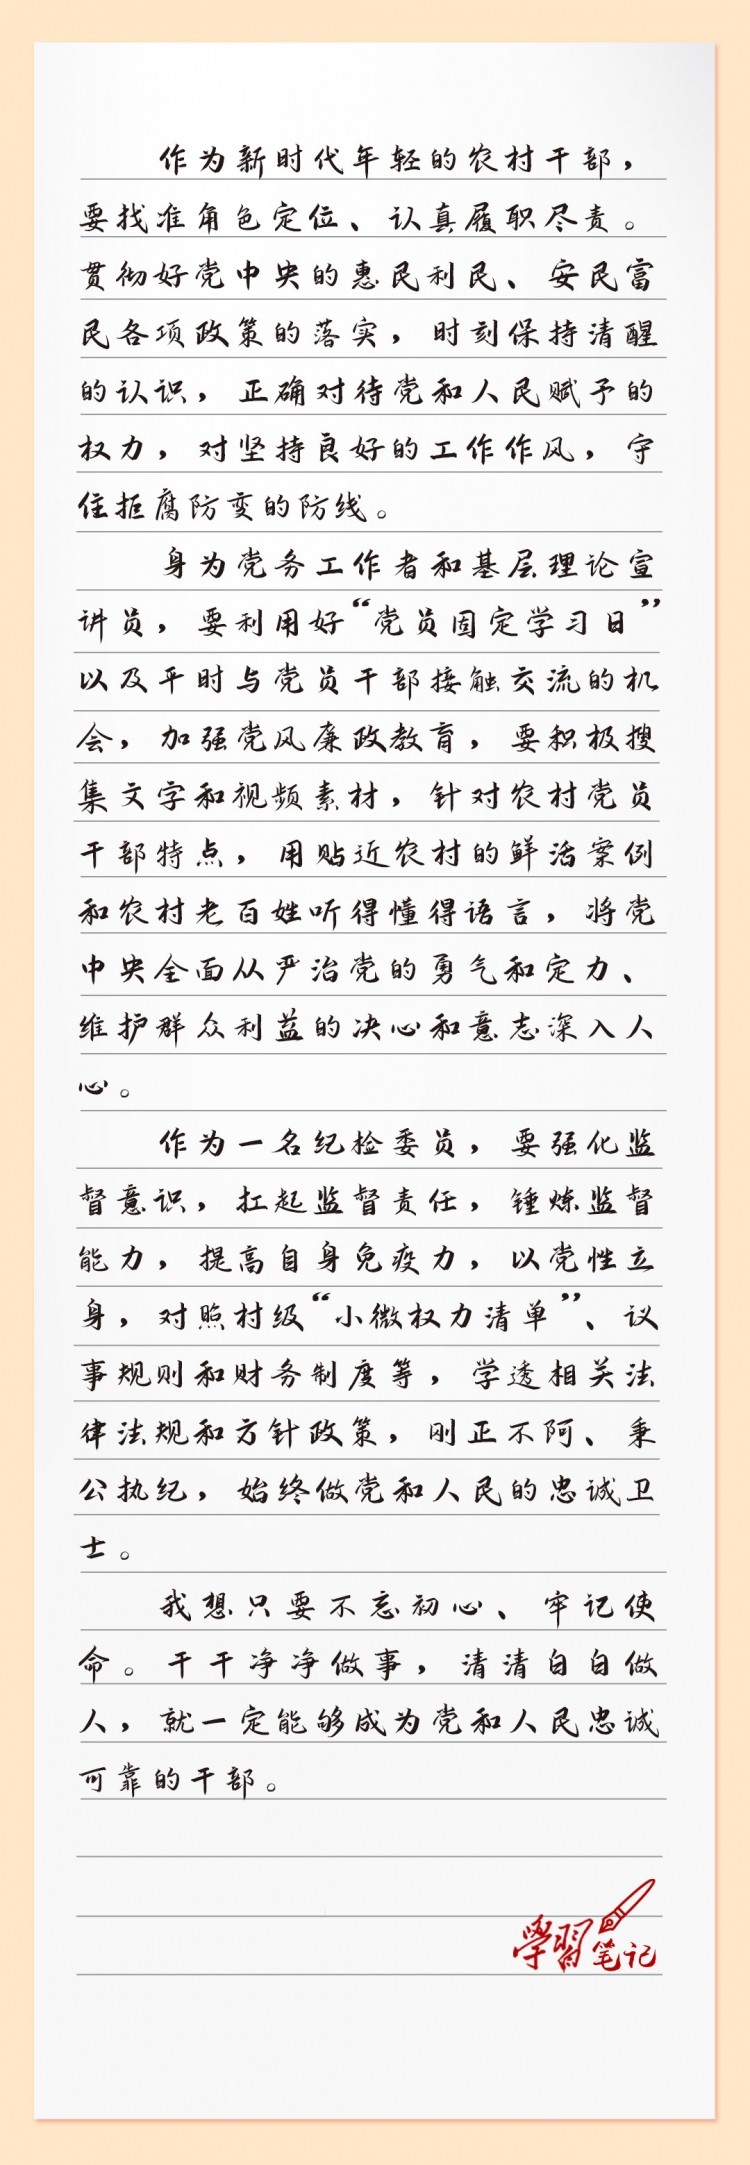 作为新时代年轻的农村干部，
要找准角色定位、认真履职尽责。
贯彻好党中央的惠民利民、安民富
民各项政策的落实，时刻保持清醒
的认识，正确对待党和人民赋予的
权力，对坚持良好的工作作风，守
住拒腐防变的防线。
身为党务工作者和基层理论宣
讲员，要利用好“党员固定学习日”
以及平时与党员干部接触交流的机
会，加强党风廉政教育，要积极搜
集文字和视频素材，针对农村党员
干部特点，用贴近农村的鲜活案例
和农村老百姓听得懂得语言，将党
中央全面从严治党的勇气和定力、
维护群众利益的决心和意志深入人
心。
作为一名纪检委员，要强化监
督意识，扛起监督责任，锤炼监督
能力，提高自身免疫力，以党性立
身，对照村级“小微权力清单”、议
事规则和财务制度等，学透相关法
律法规和方针政策，刚正不阿、秉
公执纪，始终做党和人民的忠诚卫
士。
我想只要不忘初心、牢记使
命。干干净净做事，清清白白做
人，就一定能够成为党和人民忠诚
可靠的干部。
學習笔记